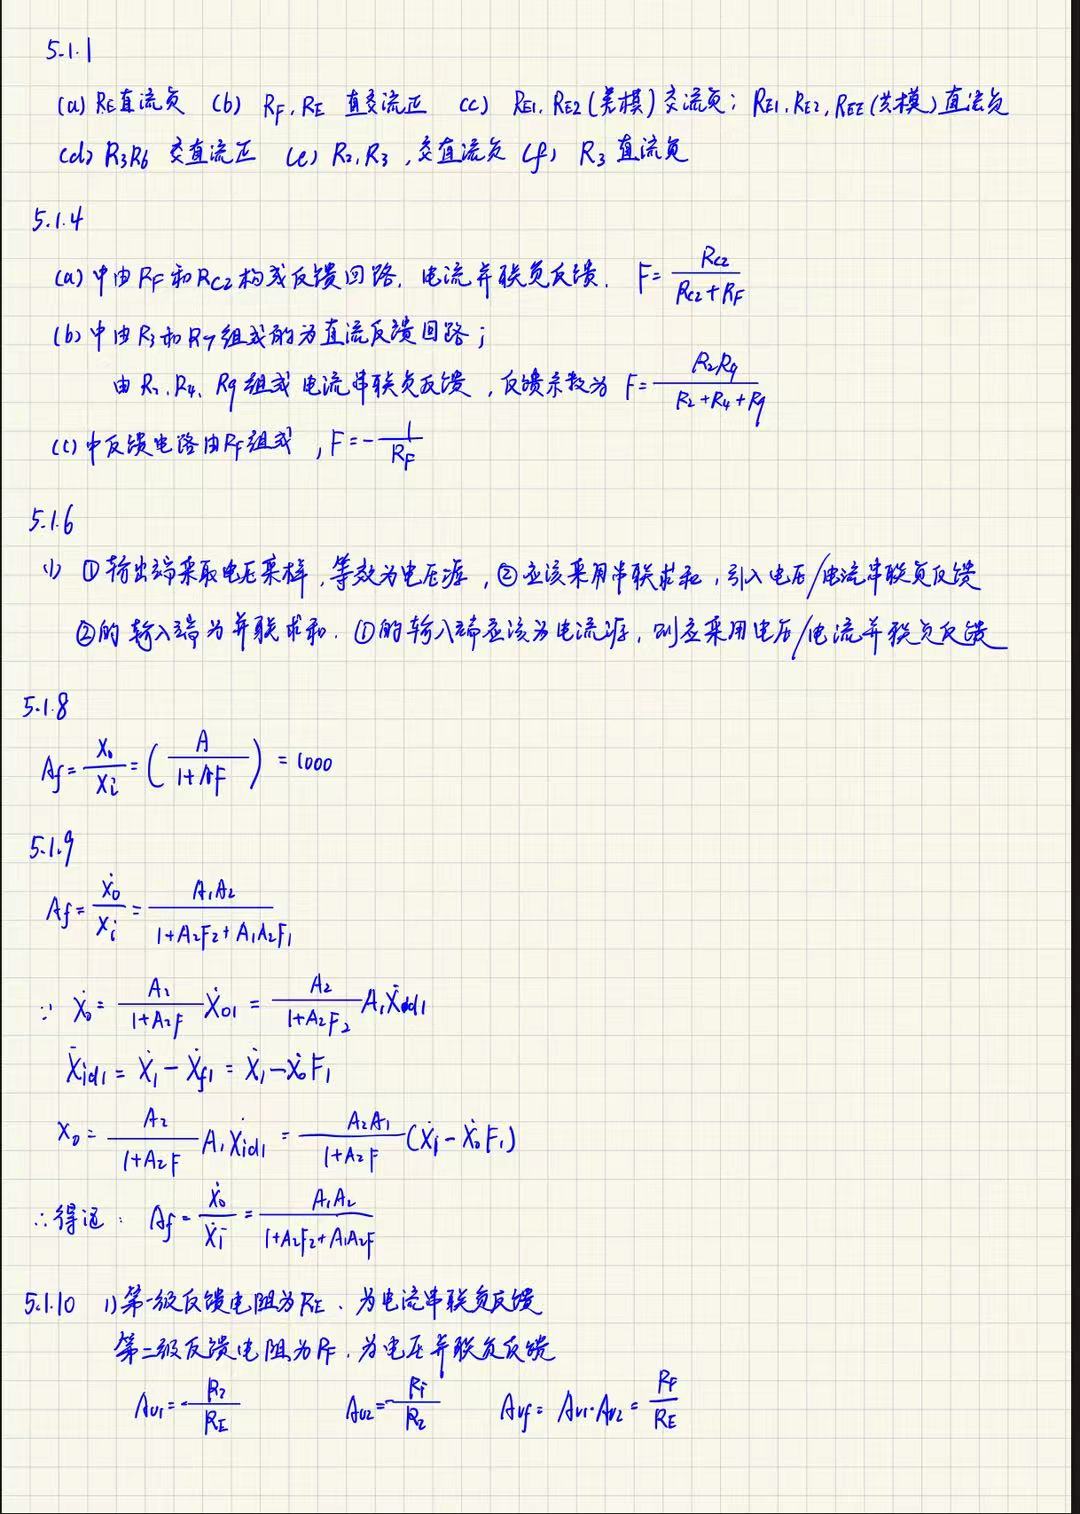 5.1.1
(a) RE直流负 (b) RF, RE 直交流正 (c) RE1, RE2(差模)交流负; RE1, RE2, REE(共模)直流负
(d) R3R6 交直流正 (e) R2, R3, 交直流负 (f) R3 直流负
5.1.4
(a) 中由RF和RC2构成反馈回路, 电流并联负反馈. F = RC2 / (RC2+RF)
(b) 中由R3和R7组成的为直流反馈回路;
由R2、R4、R9组成电流串联负反馈, 反馈系数为 F = R2R9 / (R2+R4+R9)
(c) 中反馈电路由RF组成, F = -1/RF
5.1.6
1) ①输出端采取电压采样, 等效为电压源, ②应该采用串联求和, 引入电压/电流串联负反馈
②的输入端为并联求和. ①的输入端应该为电流源, 则应采用电压/电流并联负反馈
5.1.8
Af = Xo/Xi = (A/(1+AF)) = 1000
5.1.9
Af = Ẋo/Xi = A1A2 / (1+A2F2+A1A2F1)
∵ Ẋo = A2/(1+A2F) Ẋo1 = A2/(1+A2F2) A1Ẋid1
Ẋid1 = Ẋi - Ẋf1 = Ẋi - ẊoF1
Xo = A2/(1+A2F) A1Ẋid1 = A2A1/(1+A2F) (Ẋi - ẊoF1)
∴得证: Af = Ẋo/Ẋi = A1A2 / (1+A2F2+A1A2F
5.1.10 1)第一级反馈电阻为RE、为电流串联负反馈
第二级反馈电阻为RF, 为电压并联负反馈
Au1 = -R2/RE Au2 = -RF/R2 Auf = Au1·Au2 = RF/RE